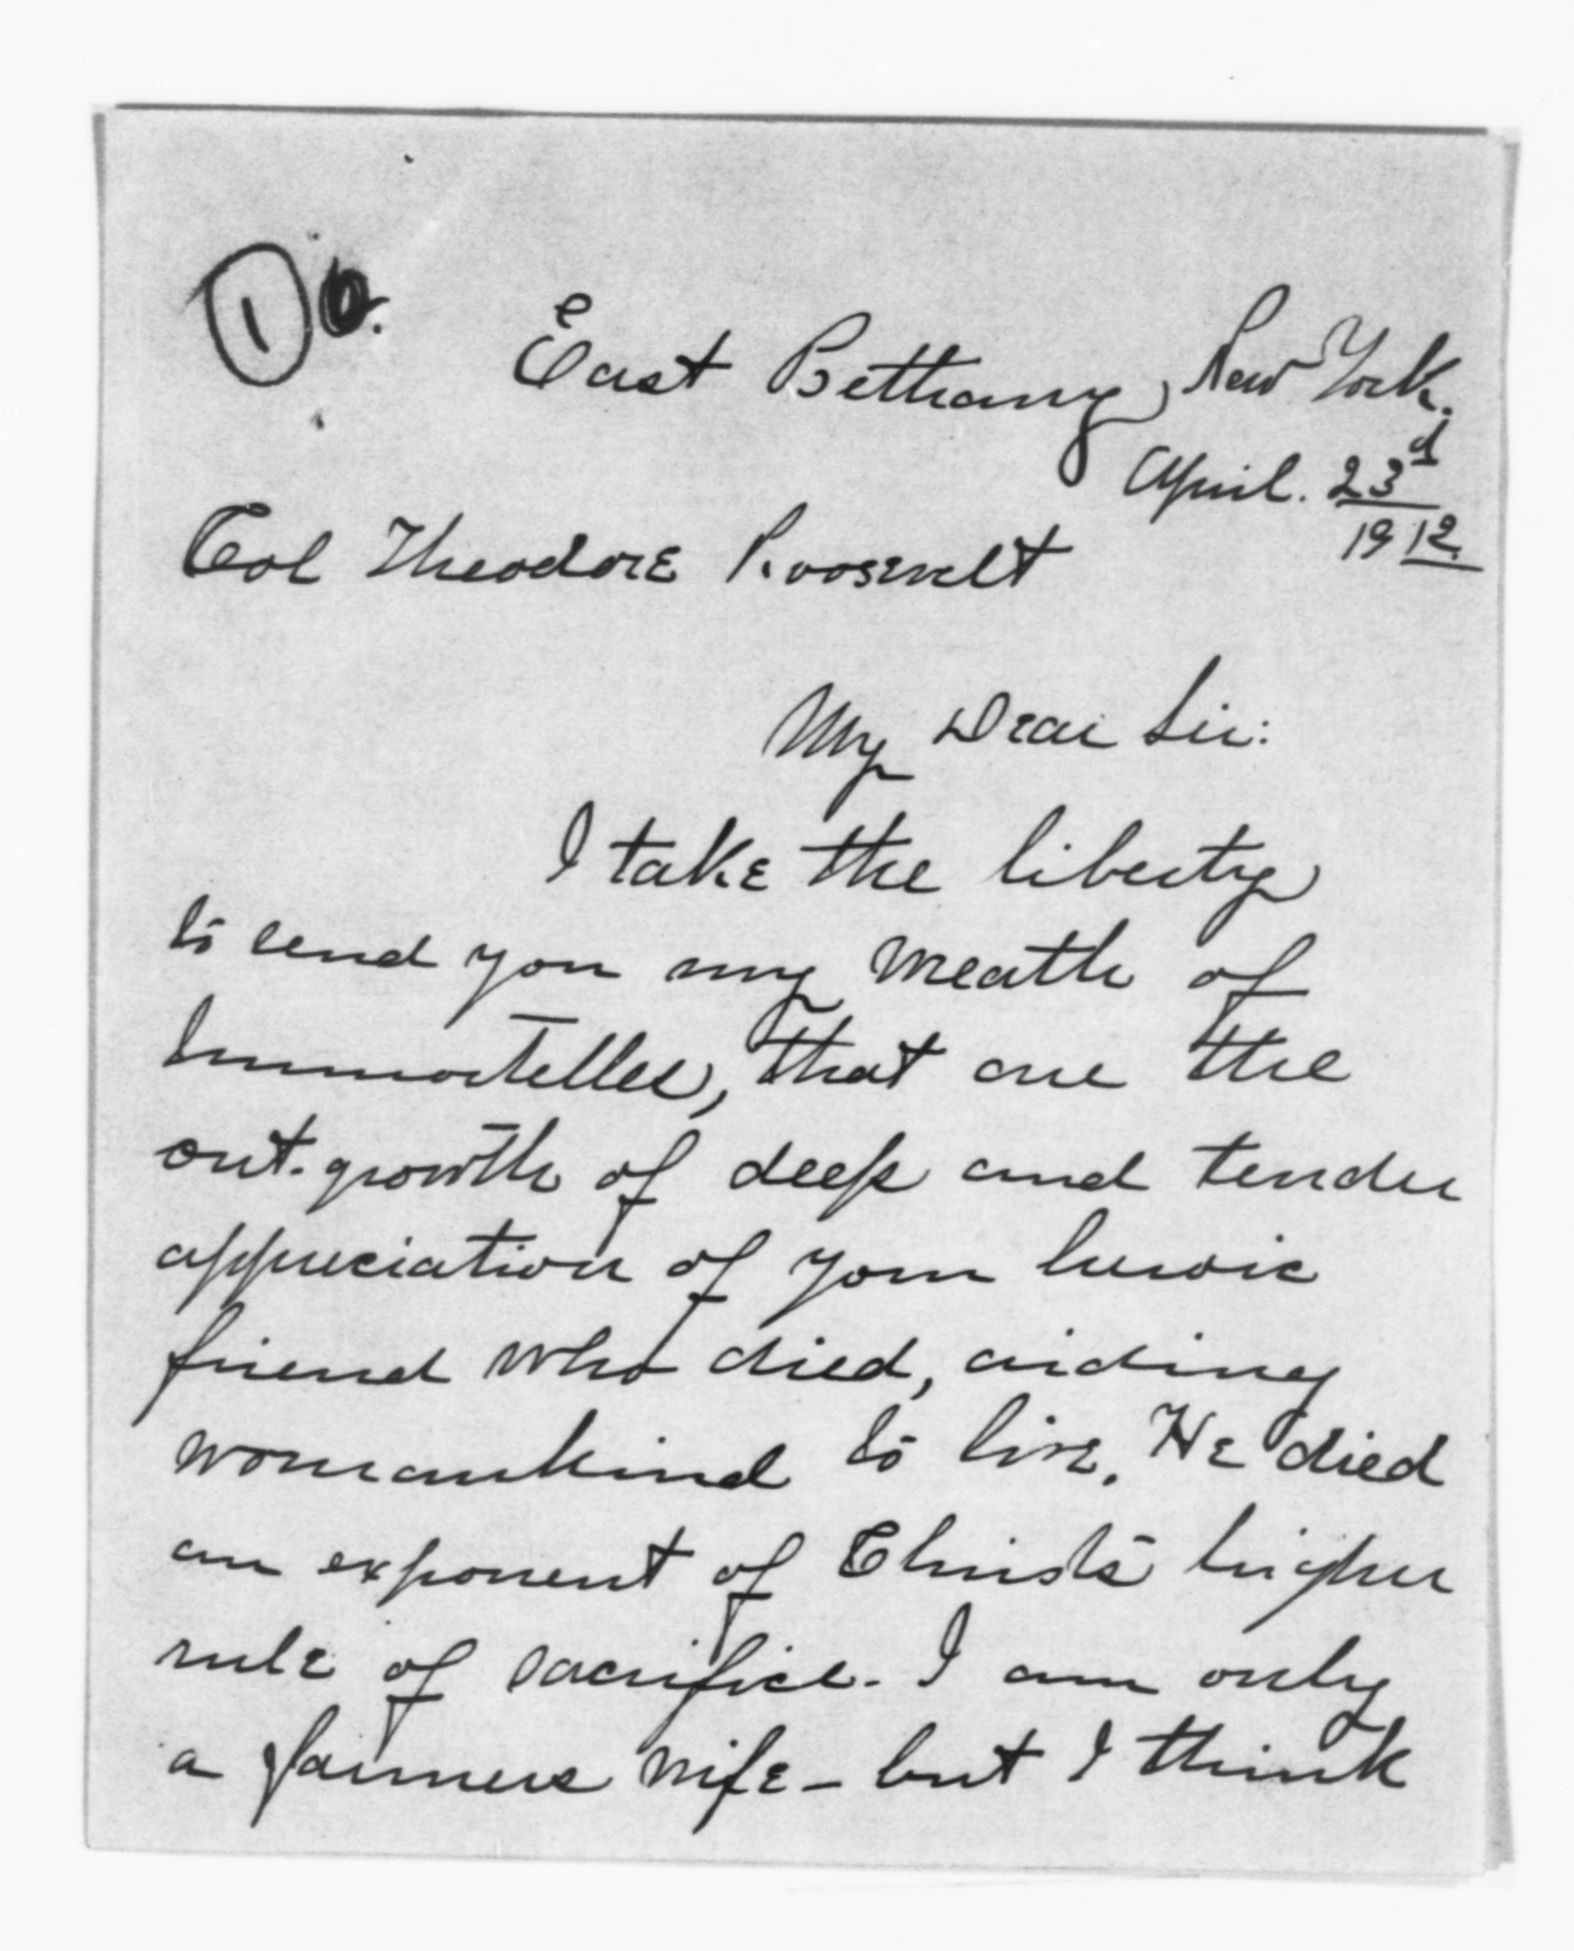 1
East Bethany, New York.
April. 23d
1912.
Col Theodore Roosevelt
My Dear Sir:
I take the liberty
to send you my wreath of
Immortelles, that are the
out-growth of deep and tender
appreciation of your heroic
friend who died, aiding
womankind to live. He died
an exponent of Christs higher
rule of sacrifice - I am only
a farmers wife - but I think